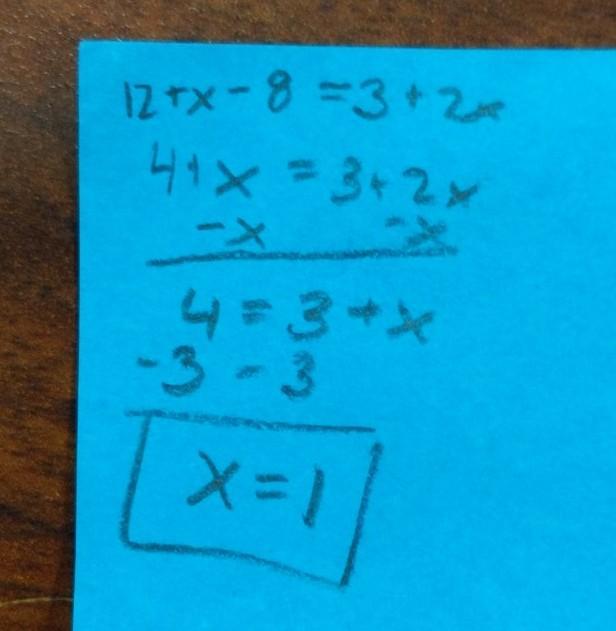 12+x-8=3+2x
4+x=3+2x
-x -x
4=3+x
-3 -3
x=1